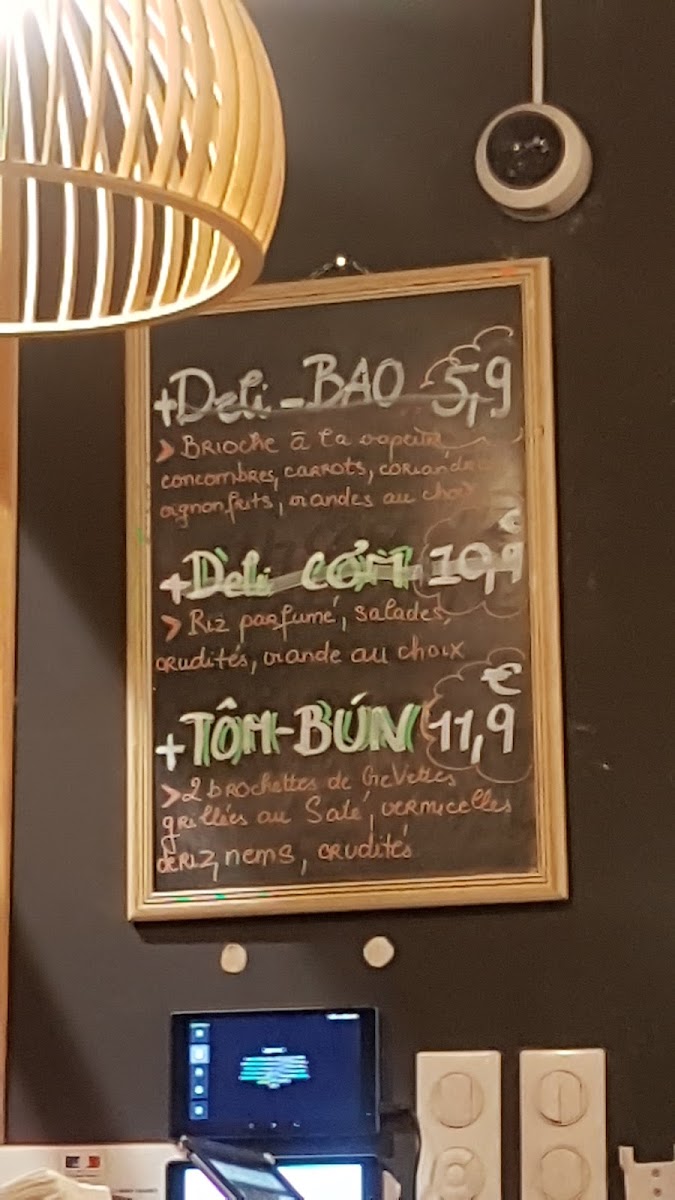 +Deli-BAO 5,9
> BRIOCHE à la vapeur
concombres, CARROTS, CORIANDRE
oignon frits, viandes au choix
€
+Deli CƠM 10,9
> RIZ parfumé, salades,
crudités, viande au choix
€
+TÔM-BÚN 11,9
>2 brochettes de CreVettes
grillées au Saté, vermicelles
de RIZ, nems, crudités